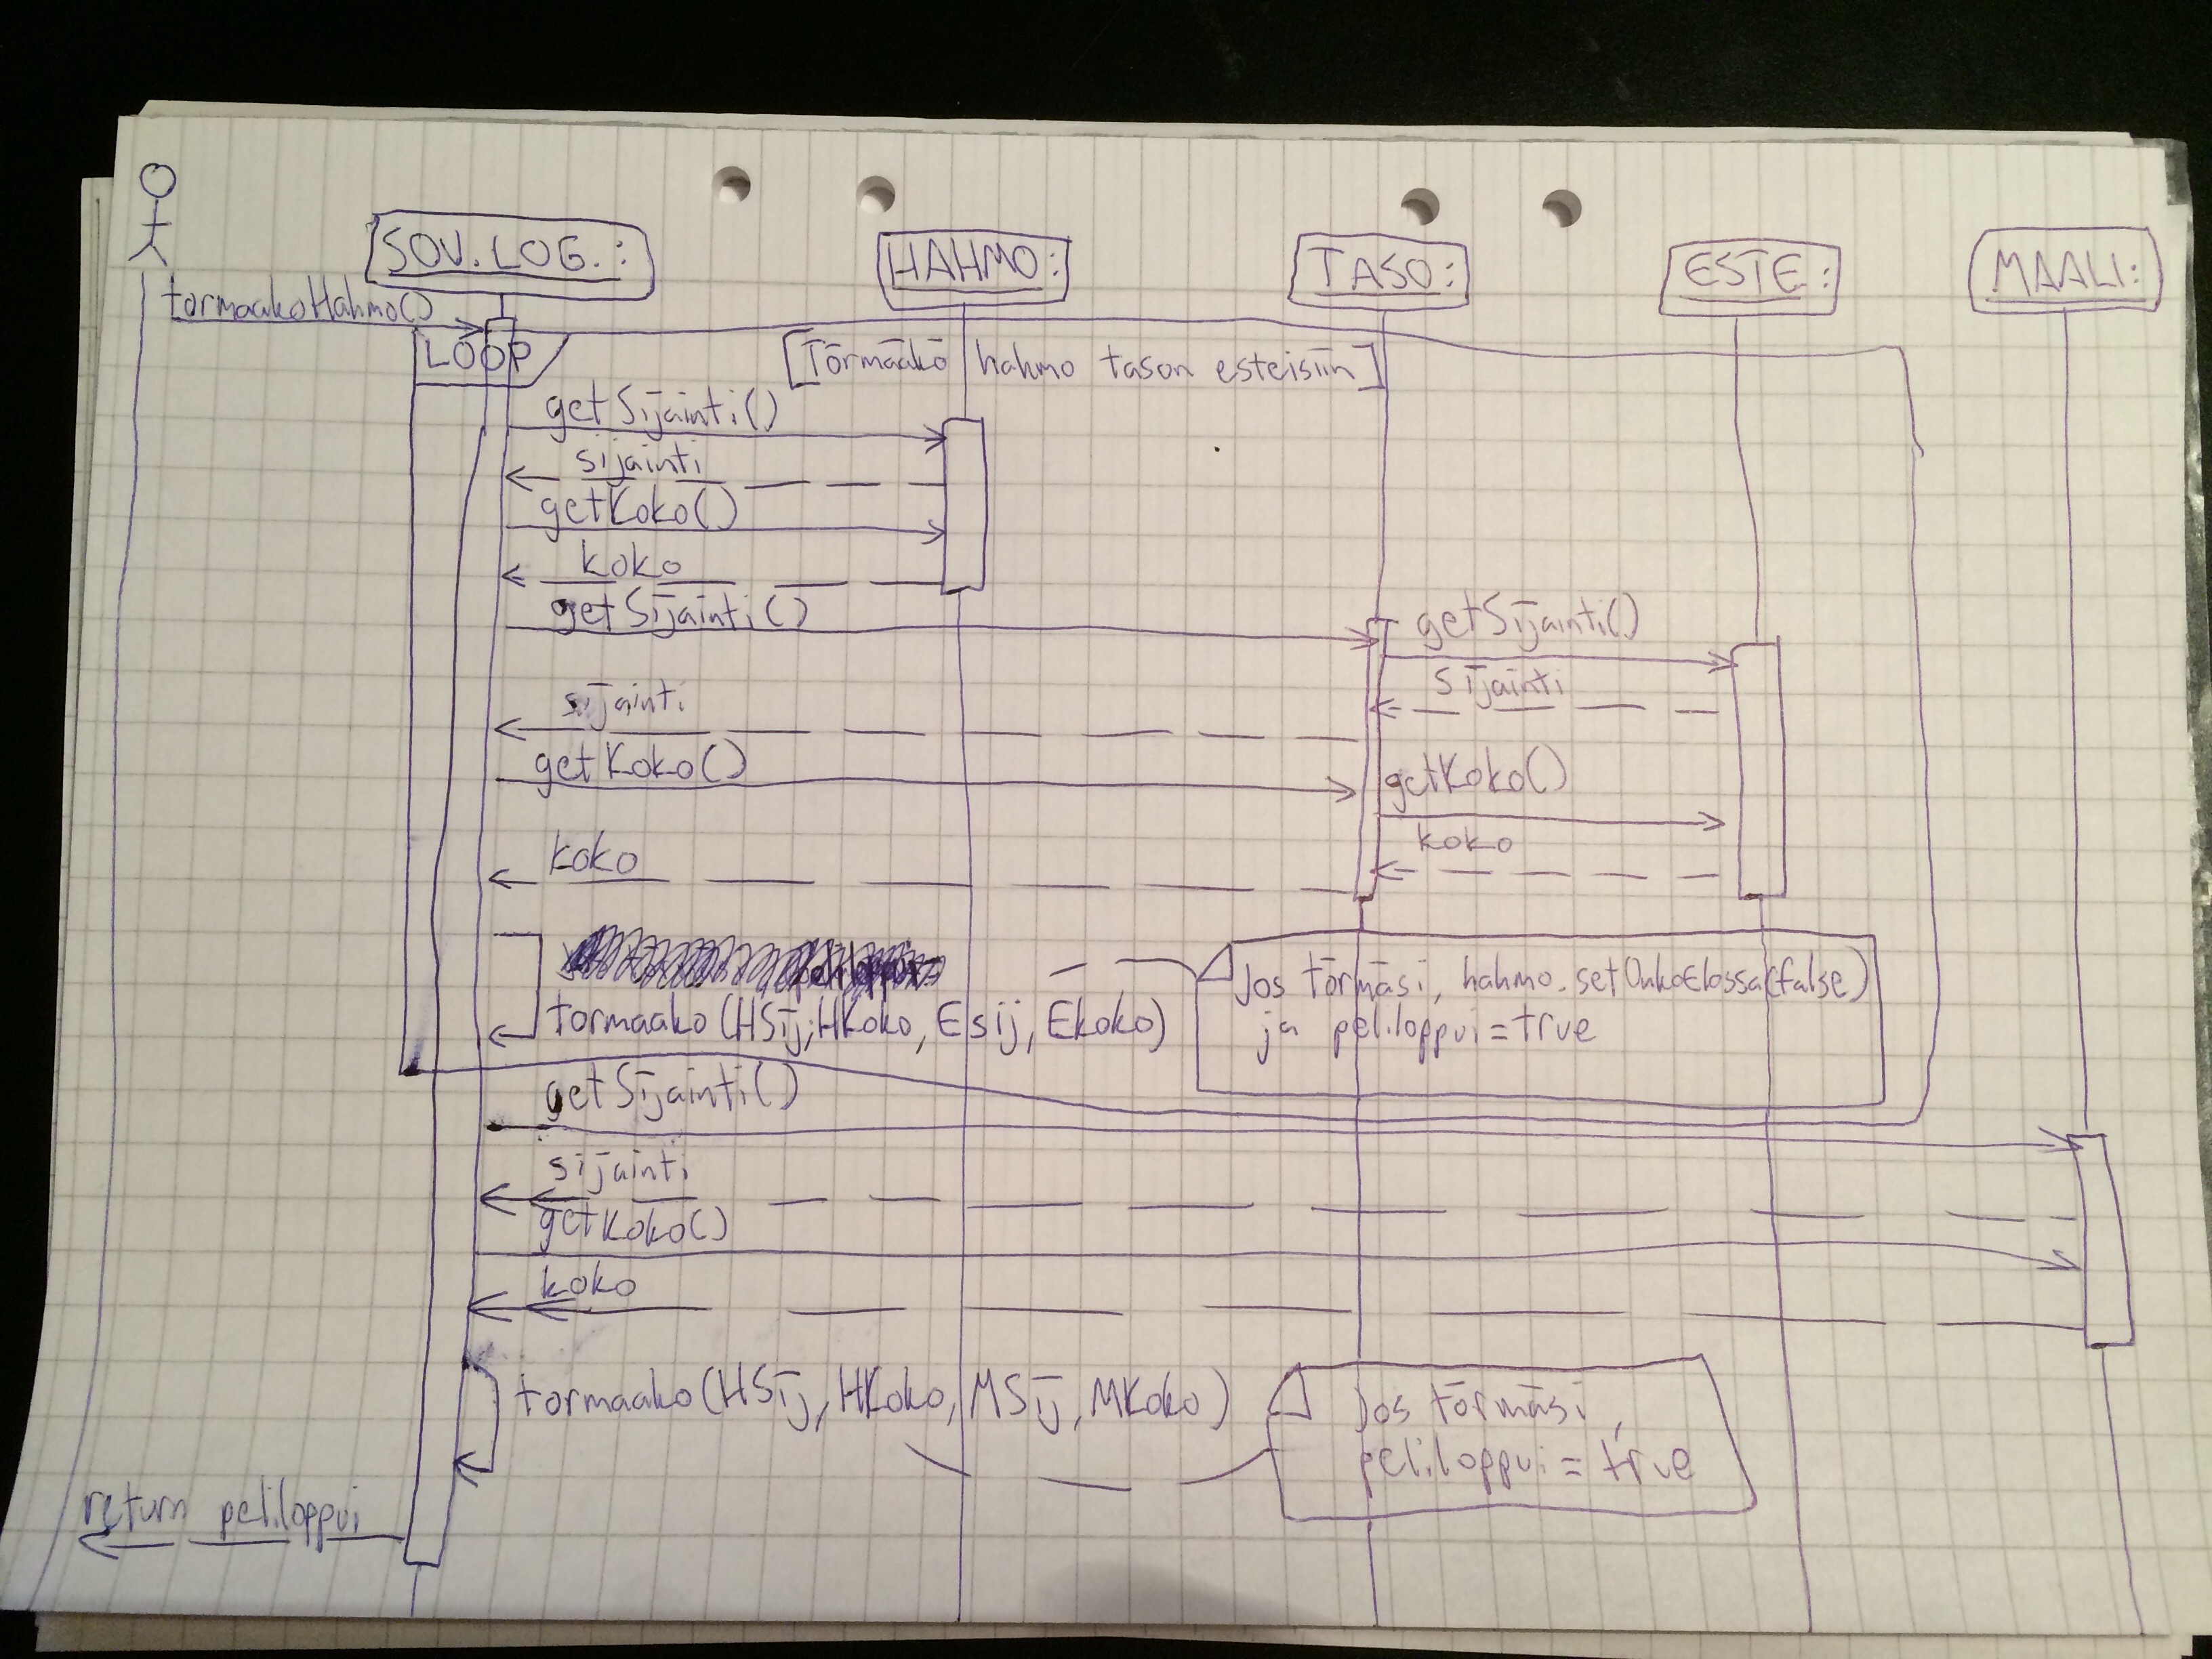 SOV.LOG.:
HAHMO:
TASO:
ESTE:
MAALI:
tormaakoHahmo()
LOOP
[Törmääkö hahmo tason esteisiin]
getSijainti()
sijainti
getKoko()
koko
getSijainti()
getSijainti()
sijainti
sijainti
getKoko()
getKoko()
koko
koko
tormaako(HSij,HKoko,Esij,Ekoko)
Jos törmäsi, hahmo.setOnkoElossa(false)
ja peliloppui=true
getSijainti()
sijainti
getKoko()
koko
tormaako(HSij,HKoko,MSij,MKoko)
Jos törmäsi,
peliloppui=true
return peliloppui